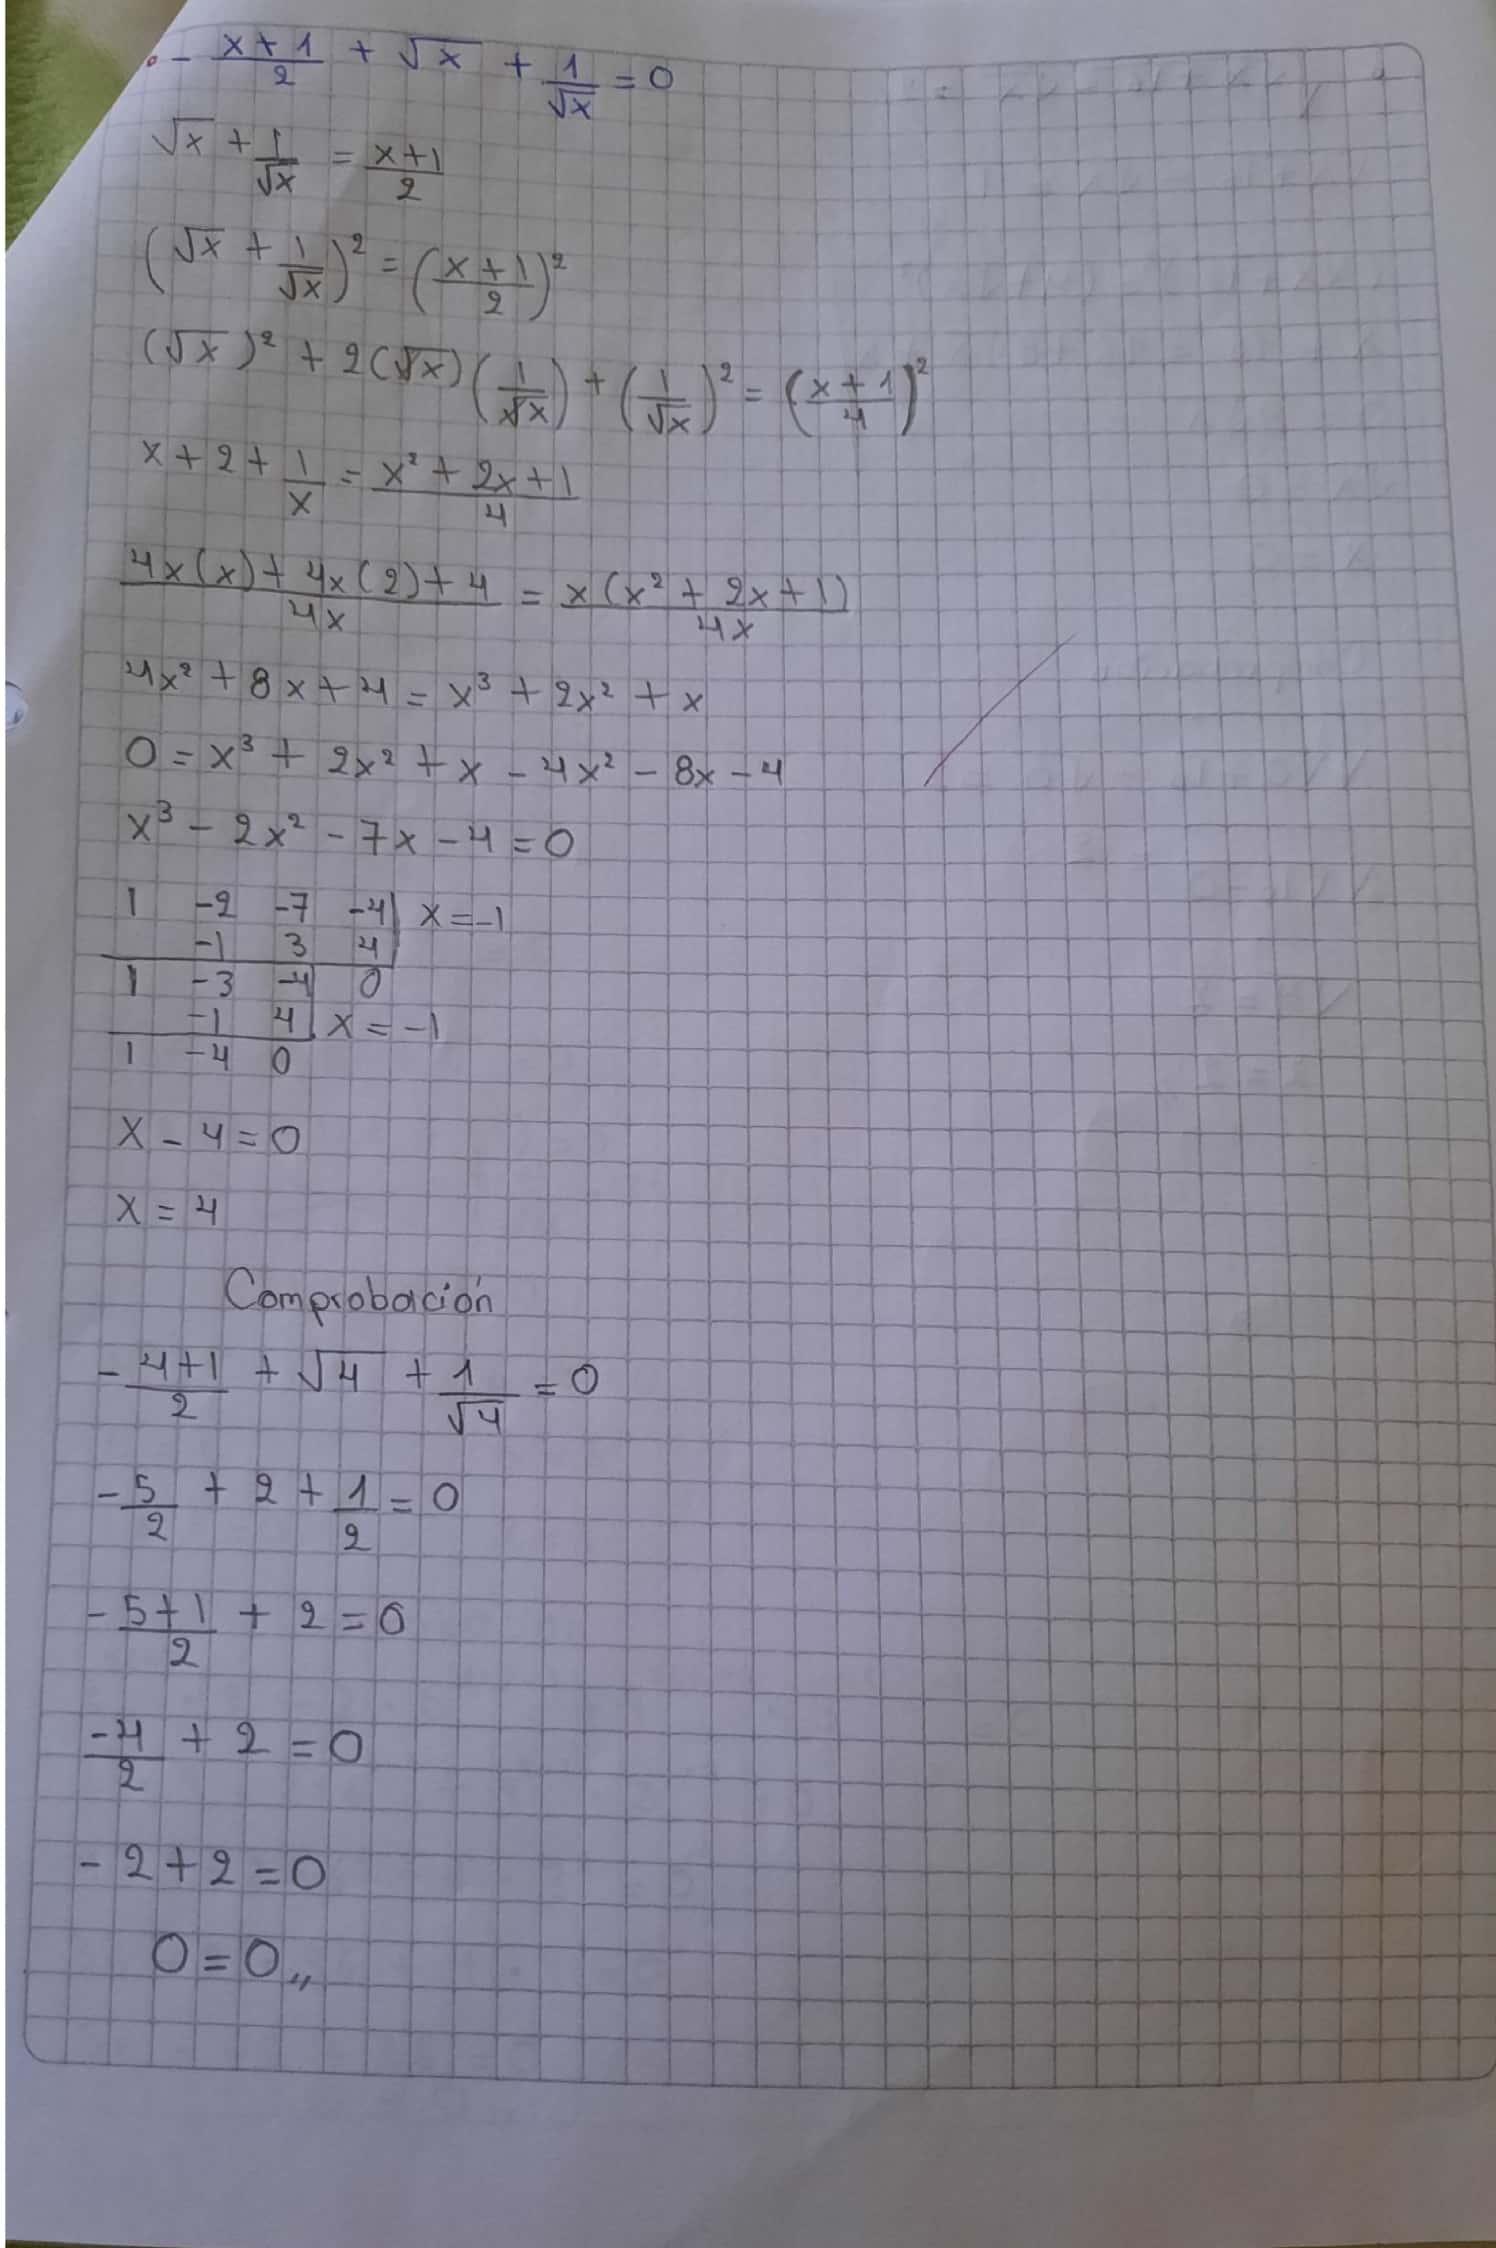 - (x+1)/2 + √x + 1/√x = 0
√x + 1/√x = (x+1)/2
(√x + 1/√x)² = ((x+1)/2)²
(√x)² + 2(√x)(1/√x) + (1/√x)² = ((x+1)/4)²
x + 2 + 1/x = (x² + 2x + 1)/4
(4x(x) + 4x(2) + 4)/4x = x(x² + 2x + 1)/4x
4x² + 8x + 4 = x³ + 2x² + x
0 = x³ + 2x² + x - 4x² - 8x - 4
x³ - 2x² - 7x - 4 = 0
1 -2 -7 -4 | x = -1
-1 3 4
1 -3 -4 0
-1 4 | x = -1
1 -4 0
x - 4 = 0
x = 4
Comprobación
- (4+1)/2 + √4 + 1/√4 = 0
- 5/2 + 2 + 1/2 = 0
- (5+1)/2 + 2 = 0
-4/2 + 2 = 0
- 2 + 2 = 0
0 = 0,,